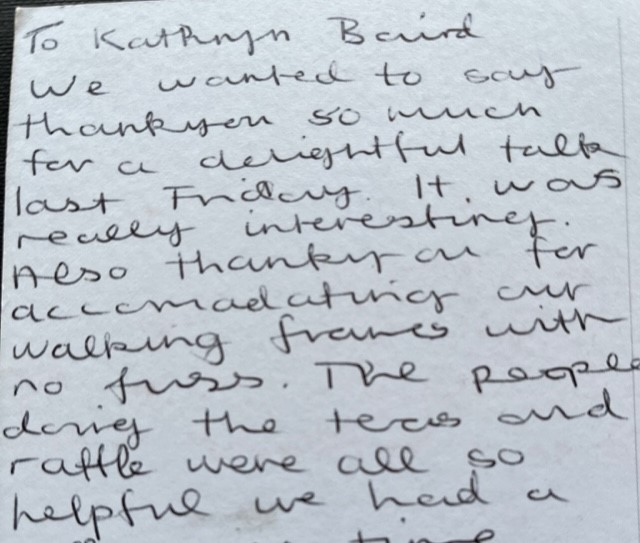 To Kathryn Baird
We wanted to say
thankyou so much
for a delightful talk
last Friday. It was
really interesting.
Also thankyou for
accomadating our
walking frames with
no fuss. The people
doing the teas and
raffle were all so
helpful we had a
time